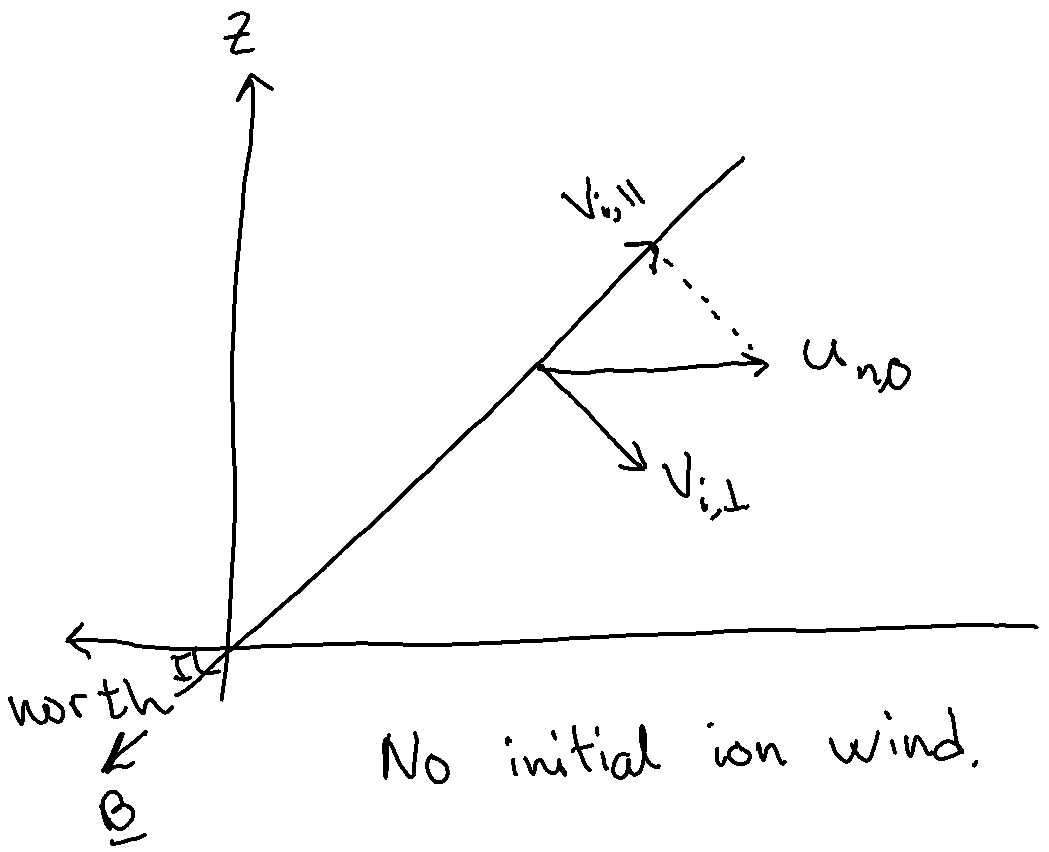 Z
V_{i,||}
u_{n,0}
V_{i,⊥}
I
north
B
No initial ion wind.